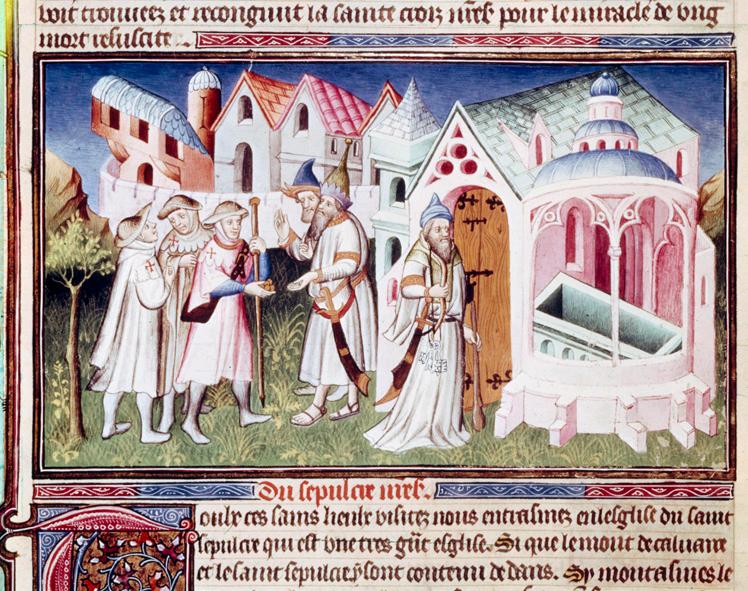 voit trouueez et recongnut la sainte croiz nr̄es pour le miracle de vng
mort resuscite.
Du sepulcre nr̄es.
Toulx ces sains lieulx visitez nous entrasmez en lesglise du saint
sepulcre qui est vne tres gr̄t esglise. Si que le mont de caluaire
et le saint sepulcre y sont contenu dedans. Sy montasmes le